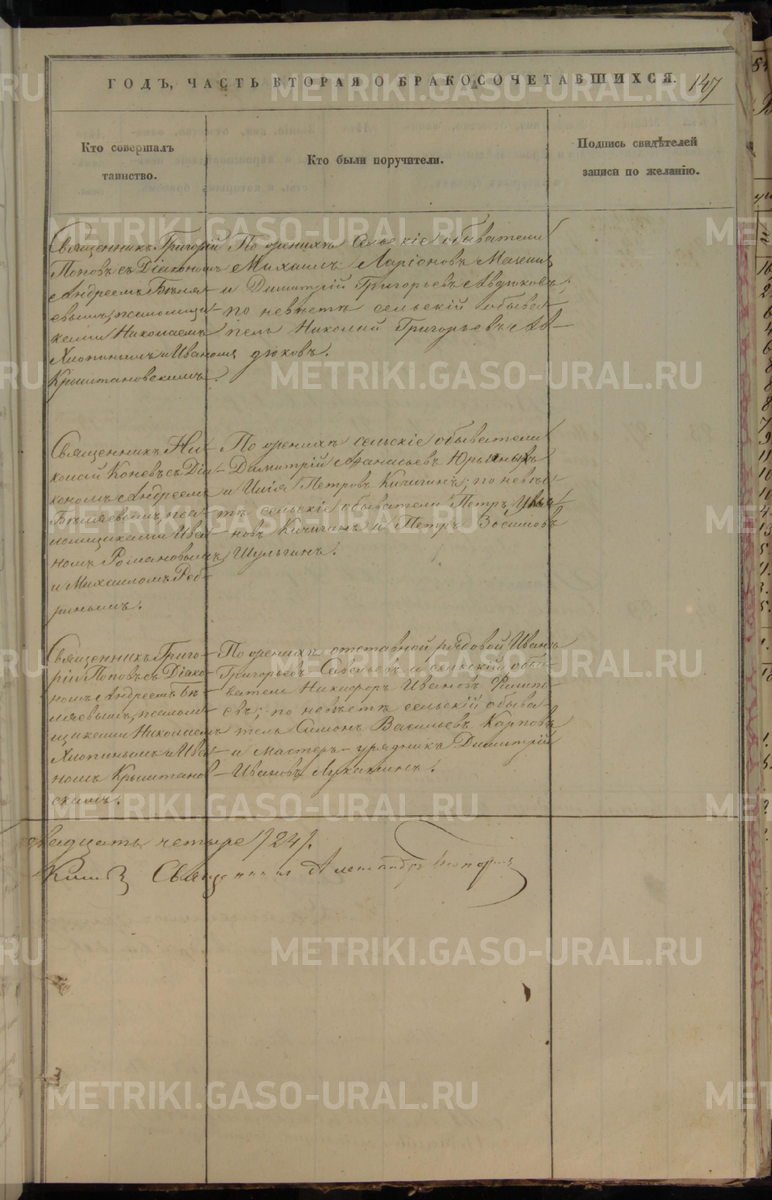 ГОДЪ, ЧАСТЬ ВТОРАЯ О БРАКОСОЧЕТАВШИХСЯ. 147
Кто совершалъ
таинство.
Кто были поручители.
Подпись свидѣтелей
записи по желанію.
Священникъ Григорій
Поповъ съ Діакономъ
Андреемъ Бѣля-
евымъ, псаломщи-
ками Николаемъ
Хлопинымъ и Иваномъ
Крыштановскимъ.
По женихѣ сельскіе обыватели
Михаилъ Ларіоновъ
и Димитрій Григорьевъ Авдюковъ;
по невѣстѣ сельскій обыва-
тель Николай Григорьевъ Ав-
дюковъ.
Священникъ Ни-
колай Коневъ съ Діа-
кономъ Андреемъ
Бѣляевымъ, пса-
ломщиками Ива-
номъ Романовымъ
и Михаиломъ
По женихѣ сельскіе обыватели
Димитрій Афанасьевъ
и Илія Петровъ Кичигинъ; по невѣс-
тѣ сельскіе обыватели Петръ
новъ Кичигинъ и Петръ Зосимовъ
Шульгинъ.
Священникъ Григо-
рій Поповъ съ Діако-
номъ Андреемъ Бѣ-
ляевымъ, псалом-
щиками Николаемъ
Хлопинымъ и Ива-
номъ Крыштанов-
скимъ.
По женихѣ отставной рядовой Иванъ
Григорьевъ Савельевъ и сельскій обы-
ватель Никифоръ Ивановъ Филип-
евъ; по невѣстѣ сельскій обыва-
тель Симонъ Васильевъ Карповъ
и мастеръ-урядникъ Димитрій
Ивановъ Лукахинъ.
двадцать четыре /24/.
Священникъ Александръ
METRIKI.GASO-URAL.RU